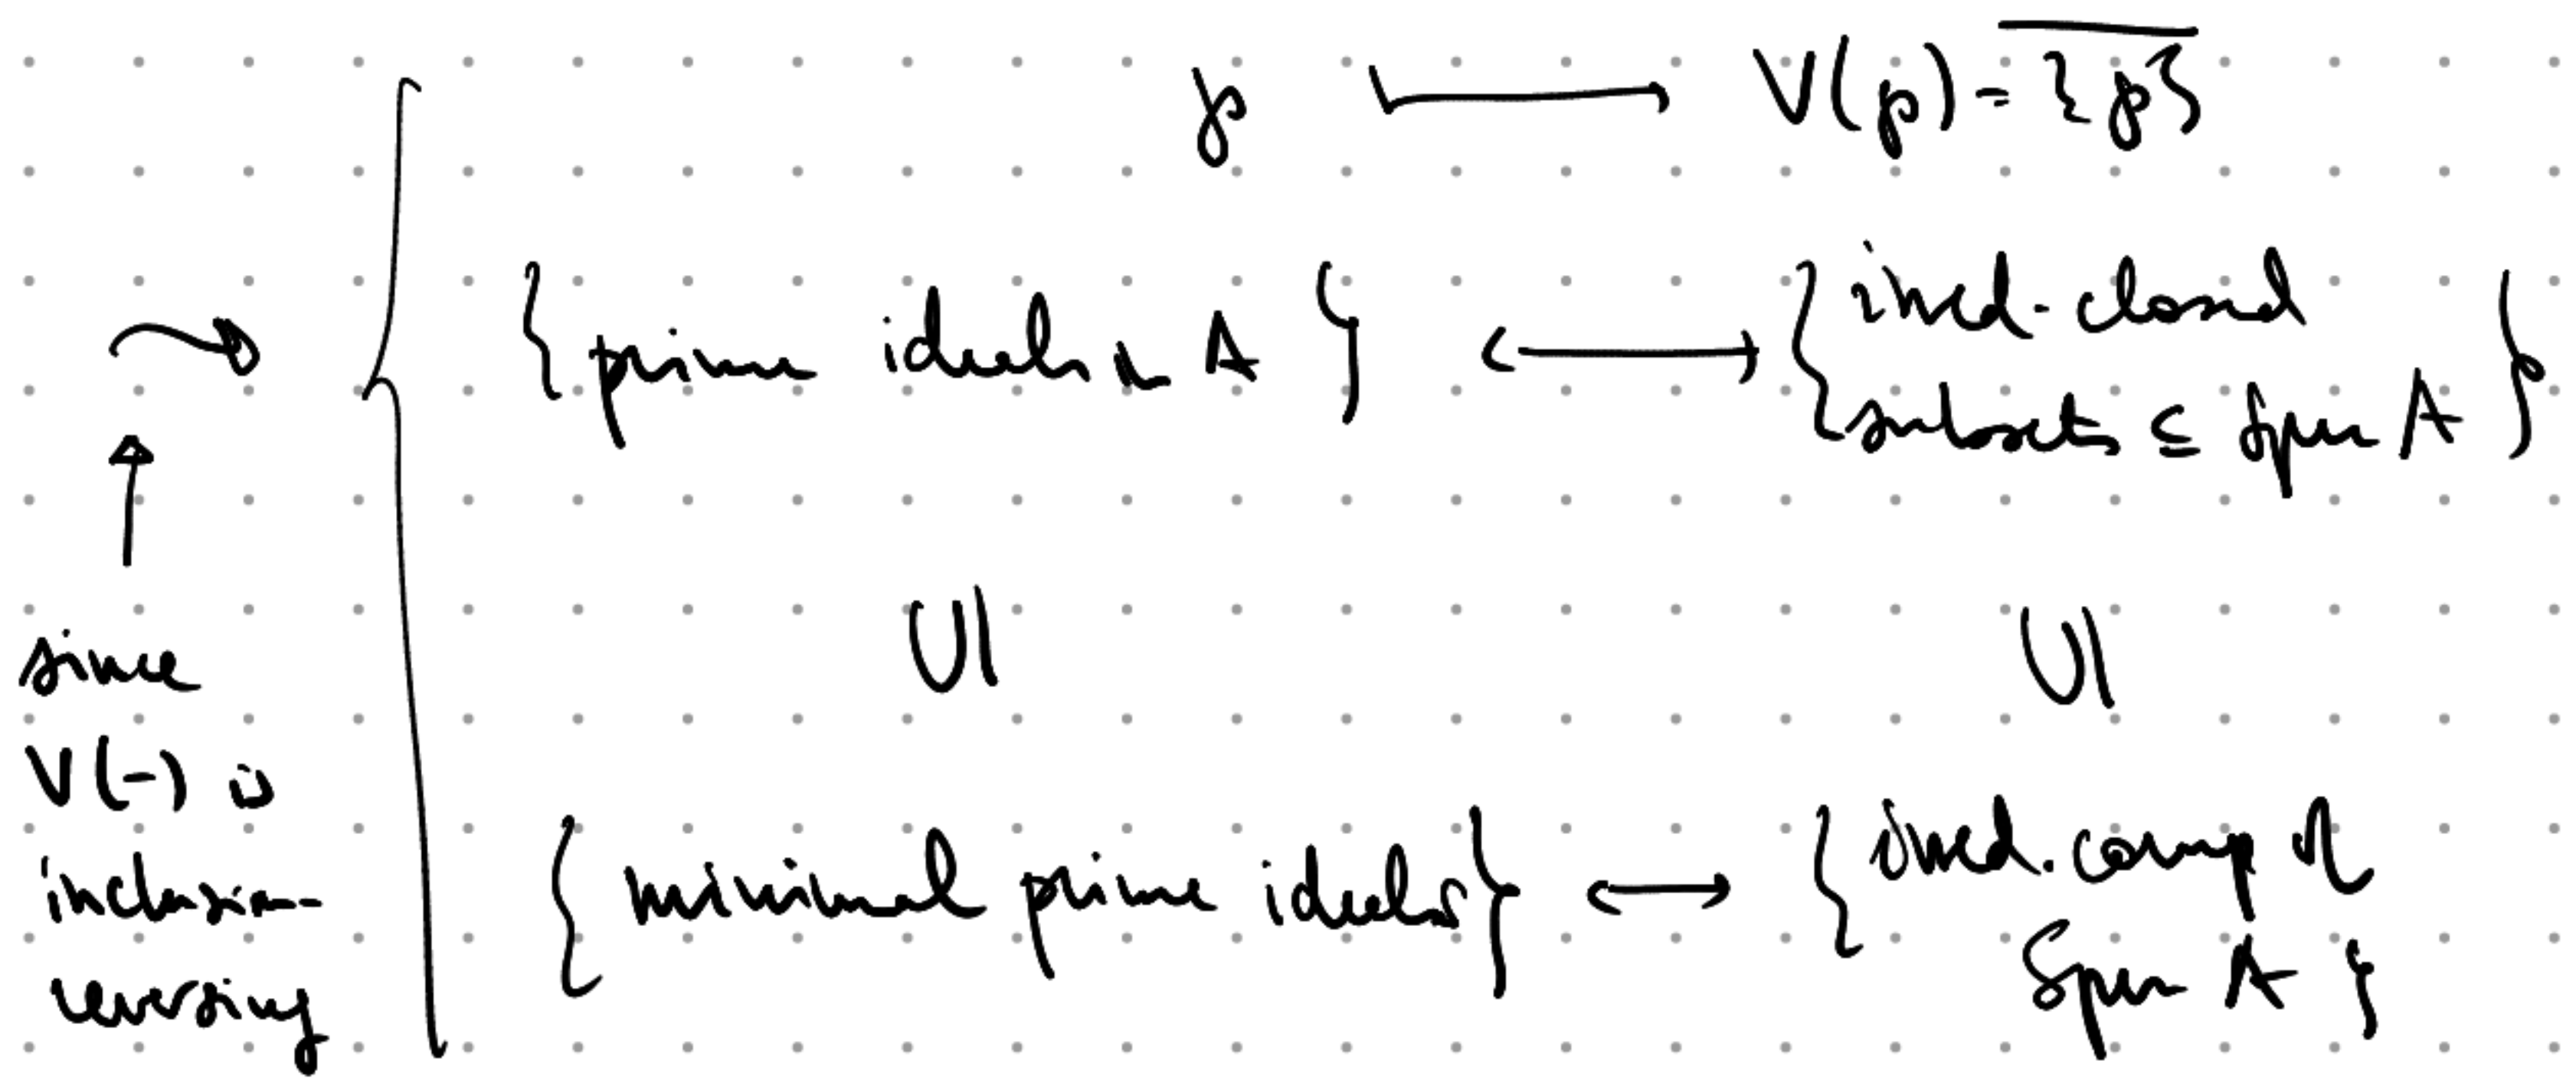 𝔭 ⟼ V(𝔭) = \overline{{𝔭}}
{ prime ideals in A } ⟷ { irred. closed
subsets ⊆ Spec A }
U| U|
{ minimal prime ideals } ⟷ { irred. comp of
Spec A }
since
V(-) is
inclusion-
reversing